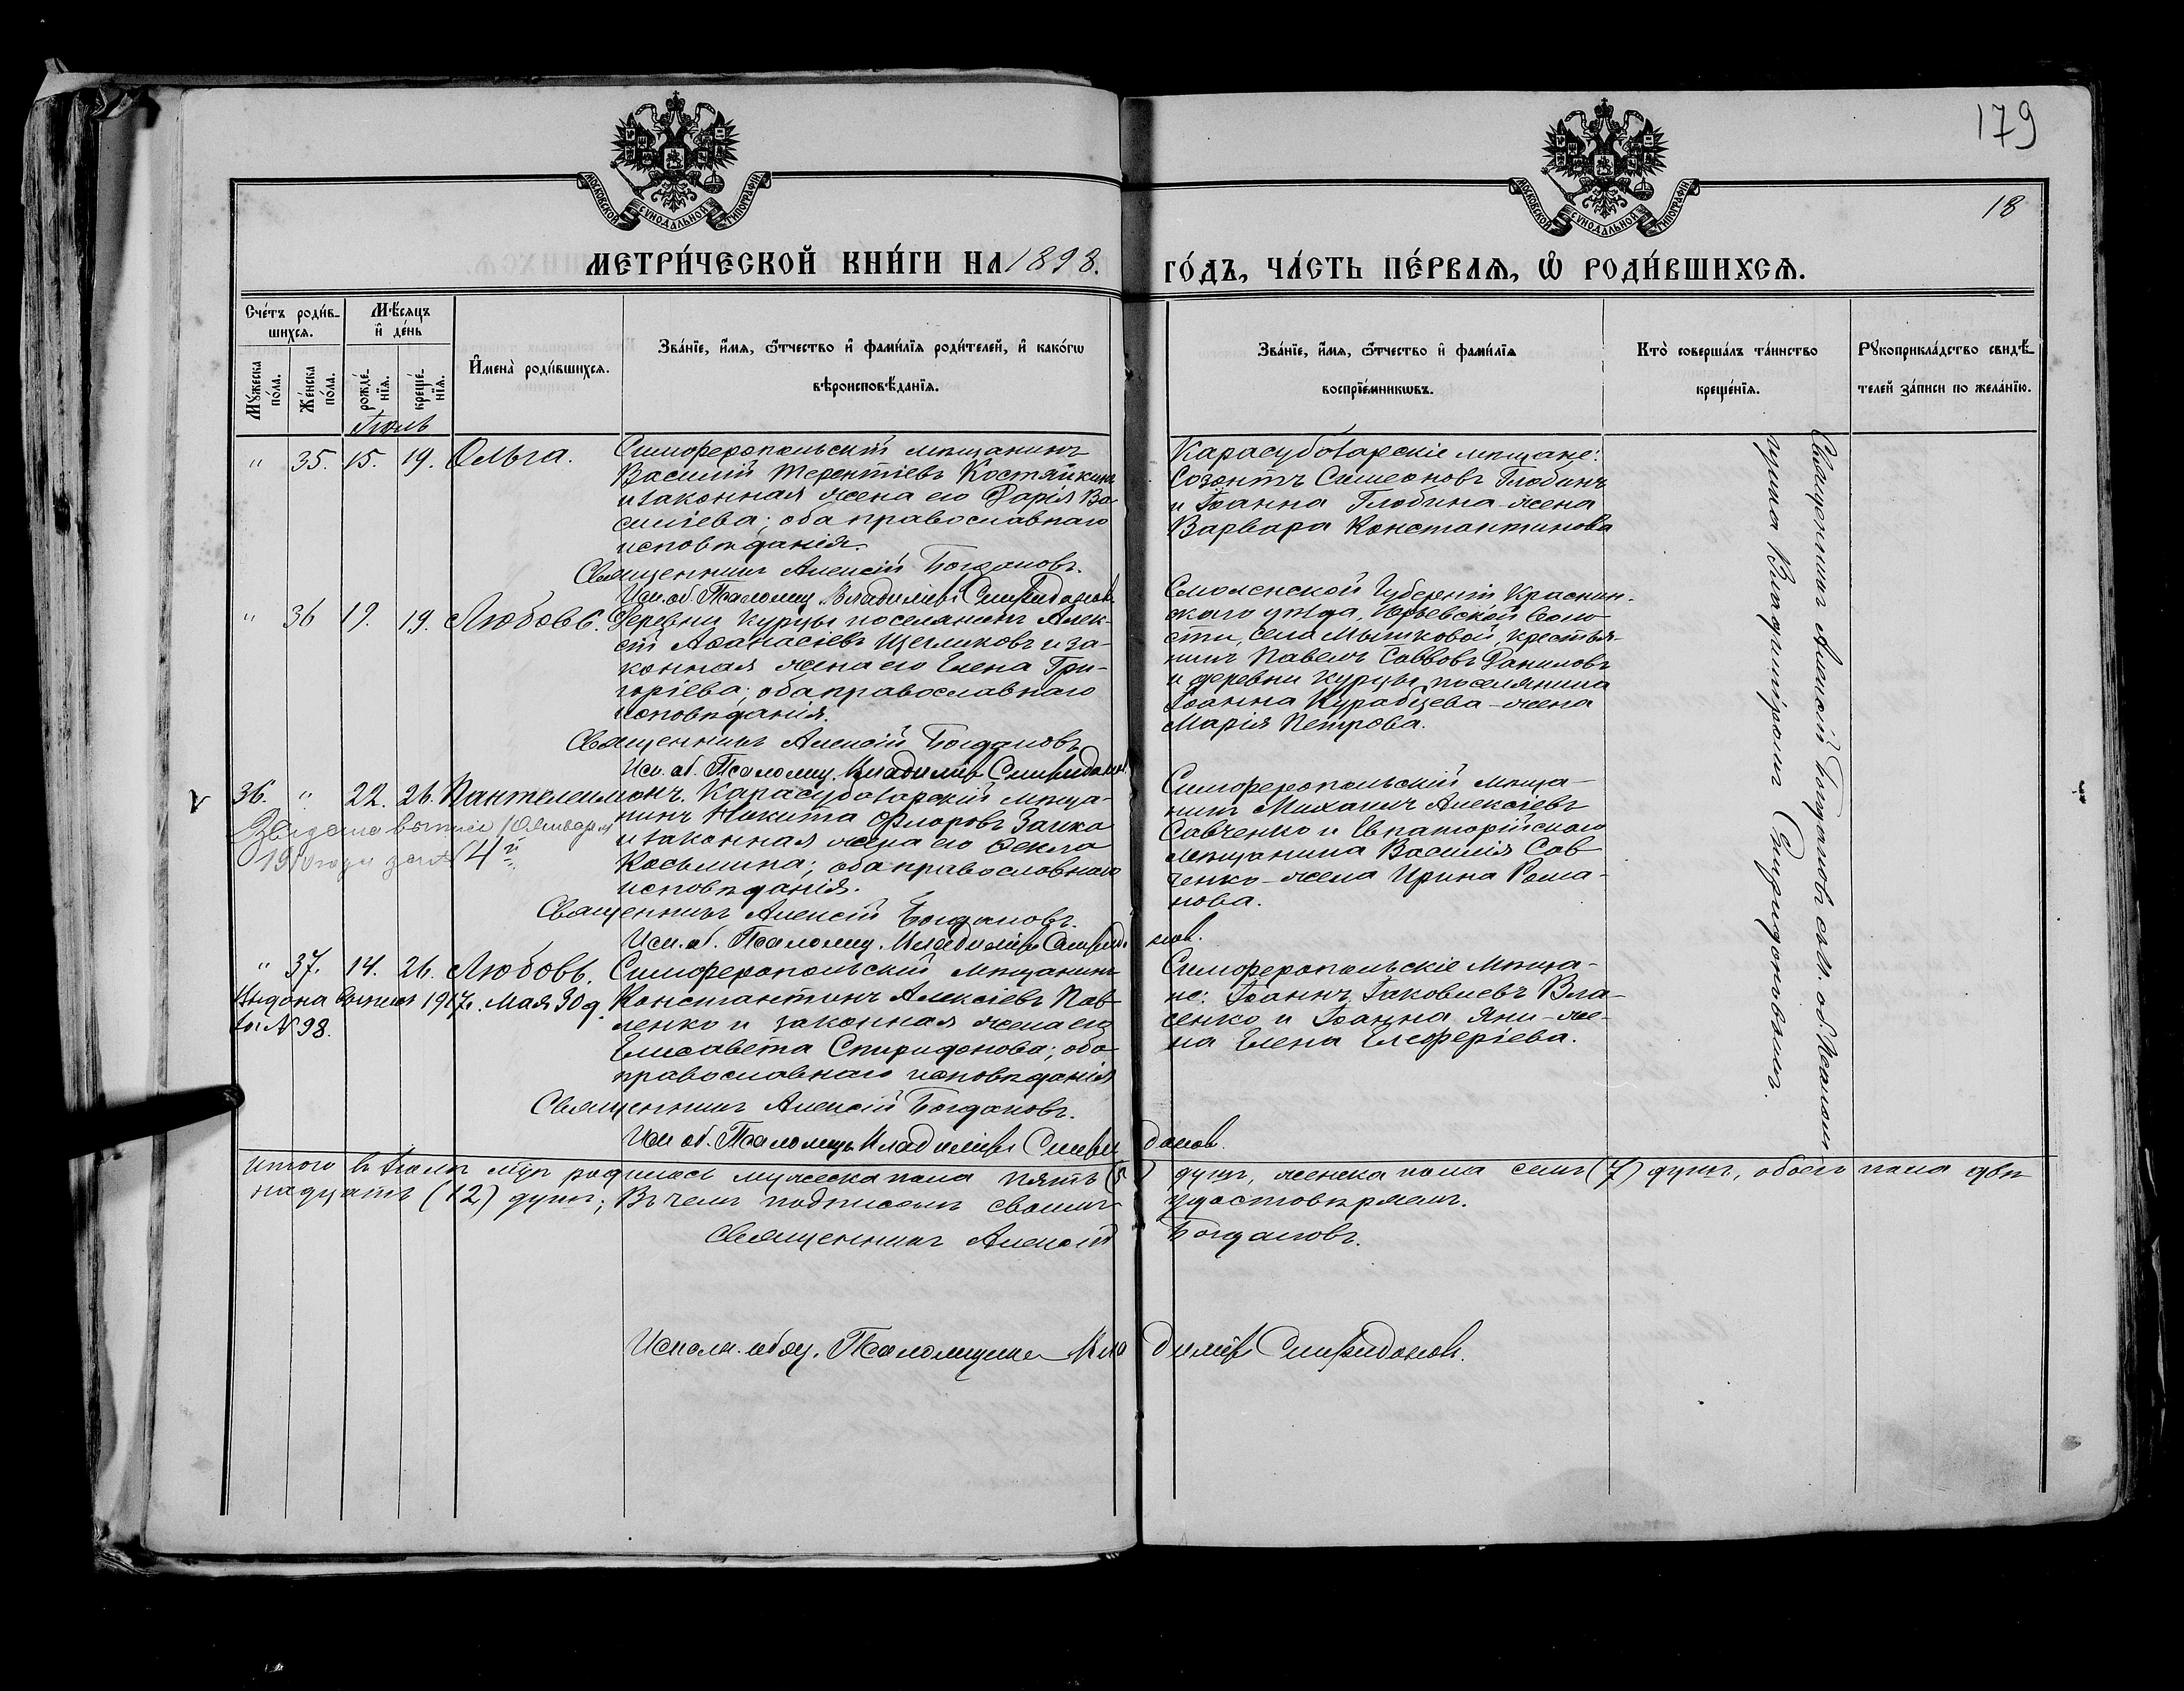 179
18
МОСКОВСКОЙ СѴНОДАЛЬНОЙ ТИПОГРАФІИ
МОСКОВСКОЙ СѴНОДАЛЬНОЙ ТИПОГРАФІИ
МЕТРИ́ЧЕСКОЙ КНИ́ГИ НА 1898. ГО́ДЪ, ЧА́СТЬ ПЕ́РВАѦ, Ѡ҆ РОДИ́ВШИХСѦ.
Сче́тъ роди́в-
шихсѧ.
Мꙋ́жеска по́ла.
Же́нска по́ла.
Мѣ́сѧцъ и҆ де́нь
рожде́-
нїѧ.
креще́-
нїѧ.
Іюль
И҆мена̀ роди́вшихсѧ.
Зва́нїе, и҆́мѧ, ѻ҆́тчество и҆ фами́лїѧ роди́телей, и҆ како́гѡ
вѣроисповѣ́данїѧ.
Зва́нїе, и҆́мѧ, ѻ҆́тчество и҆ фами́лїѧ
воспрїе́мникѡвъ.
Кто̀ соверша́лъ та́инство
креще́нїѧ.
Рꙋкоприкла́дство свидѣ́-
телей за́писи по жела́нїю.
" 35. 15. 19. Ольга.
Симферопольскій мѣщанинъ
Василій Терентіевъ Костяйкинъ
и законная жена его Дарія Ва-
силіева; оба православнаго
исповѣданія.
Священникъ Алексій Богдановъ.
Исп. об. Псаломщ. Владиміръ Спиридоновъ
Карасубазарскіе мѣщане:
Созонтъ Симеоновъ Глобинъ
и Іоанна Глобина жена
Варвара Константинова
" 36 17. 19. Любовь.
Деревни Курцы поселянинъ Алек-
сій Аѳанасіевъ Щегликовъ и за-
конная жена его Елена Гри-
горіева; оба православнаго
исповѣданія.
Священникъ Алексій Богдановъ
Исп. об. Псаломщ. Владиміръ Спиридонов.
Смоленской Губерніи Краснин-
скаго уѣзда, Юрьевской Воло-
сти, села Мышковой, крестья-
нинъ Павелъ Саввовъ Даниловъ
и деревни Курцы поселянина
Іоанна Курабцева - жена
Марія Петрова.
36. " 22. 26. Пантелеимонъ.
Карасубазарскій мѣща-
нинъ Никита Флоровъ Заика
и законная жена его Ѳекла
Косьмина; оба православнаго
исповѣданія.
Священникъ Алексій Богдановъ.
Исп. об. Псаломщ. Владиміръ Спиридонов.
выписъ 10 Января
14
Симферопольскій мѣща-
нинъ Михаилъ Алексіевъ
Савченко и Евпаторійскаго
мѣщанина Василія Сав
ченко - жена Ирина Рома-
нова.
" 37. 14. 26. Любовь.
Выдана выпись 1917г. Мая 30 д.
за № 98.
Симферопольскій Мѣщанинъ
Константинъ Алексіевъ Пав-
ленко и законная жена его
Елисавета Спиридонова; оба
православнаго исповѣданія
Священникъ Алексій Богдановъ.
Исп об. Псаломщъ Владиміръ Спиридонов.
Симферопольскіе Мѣща-
не: Іоаннъ Іаковлевъ Вла-
сенко и Іоанна Яни - же-
на Елена Елеферіева.
Священникъ Алексій Богдановъ съ и. об. Псаломщ
Владиміромъ Спиридоновымъ.
Итого въ Іюлѣ мцѣ родилось мужеска пола пять (5) душъ, женска пола семь (7) душъ, обоего пола двѣ
надцать (12) душъ; Въ чемъ подписомъ своимъ удостовѣряемъ.
Священникъ Алексій Богдановъ.
Исполн. обяз. Псаломщика Владиміръ Спиридоновъ.